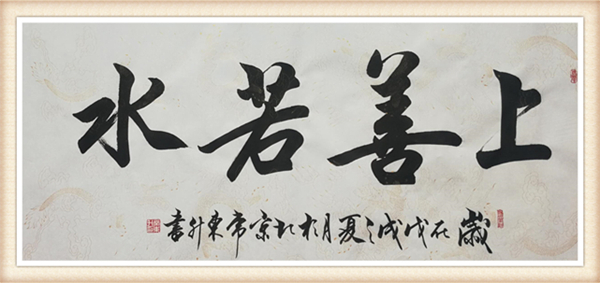 上善若水
歲在戊戌之夏月於北京常東升書